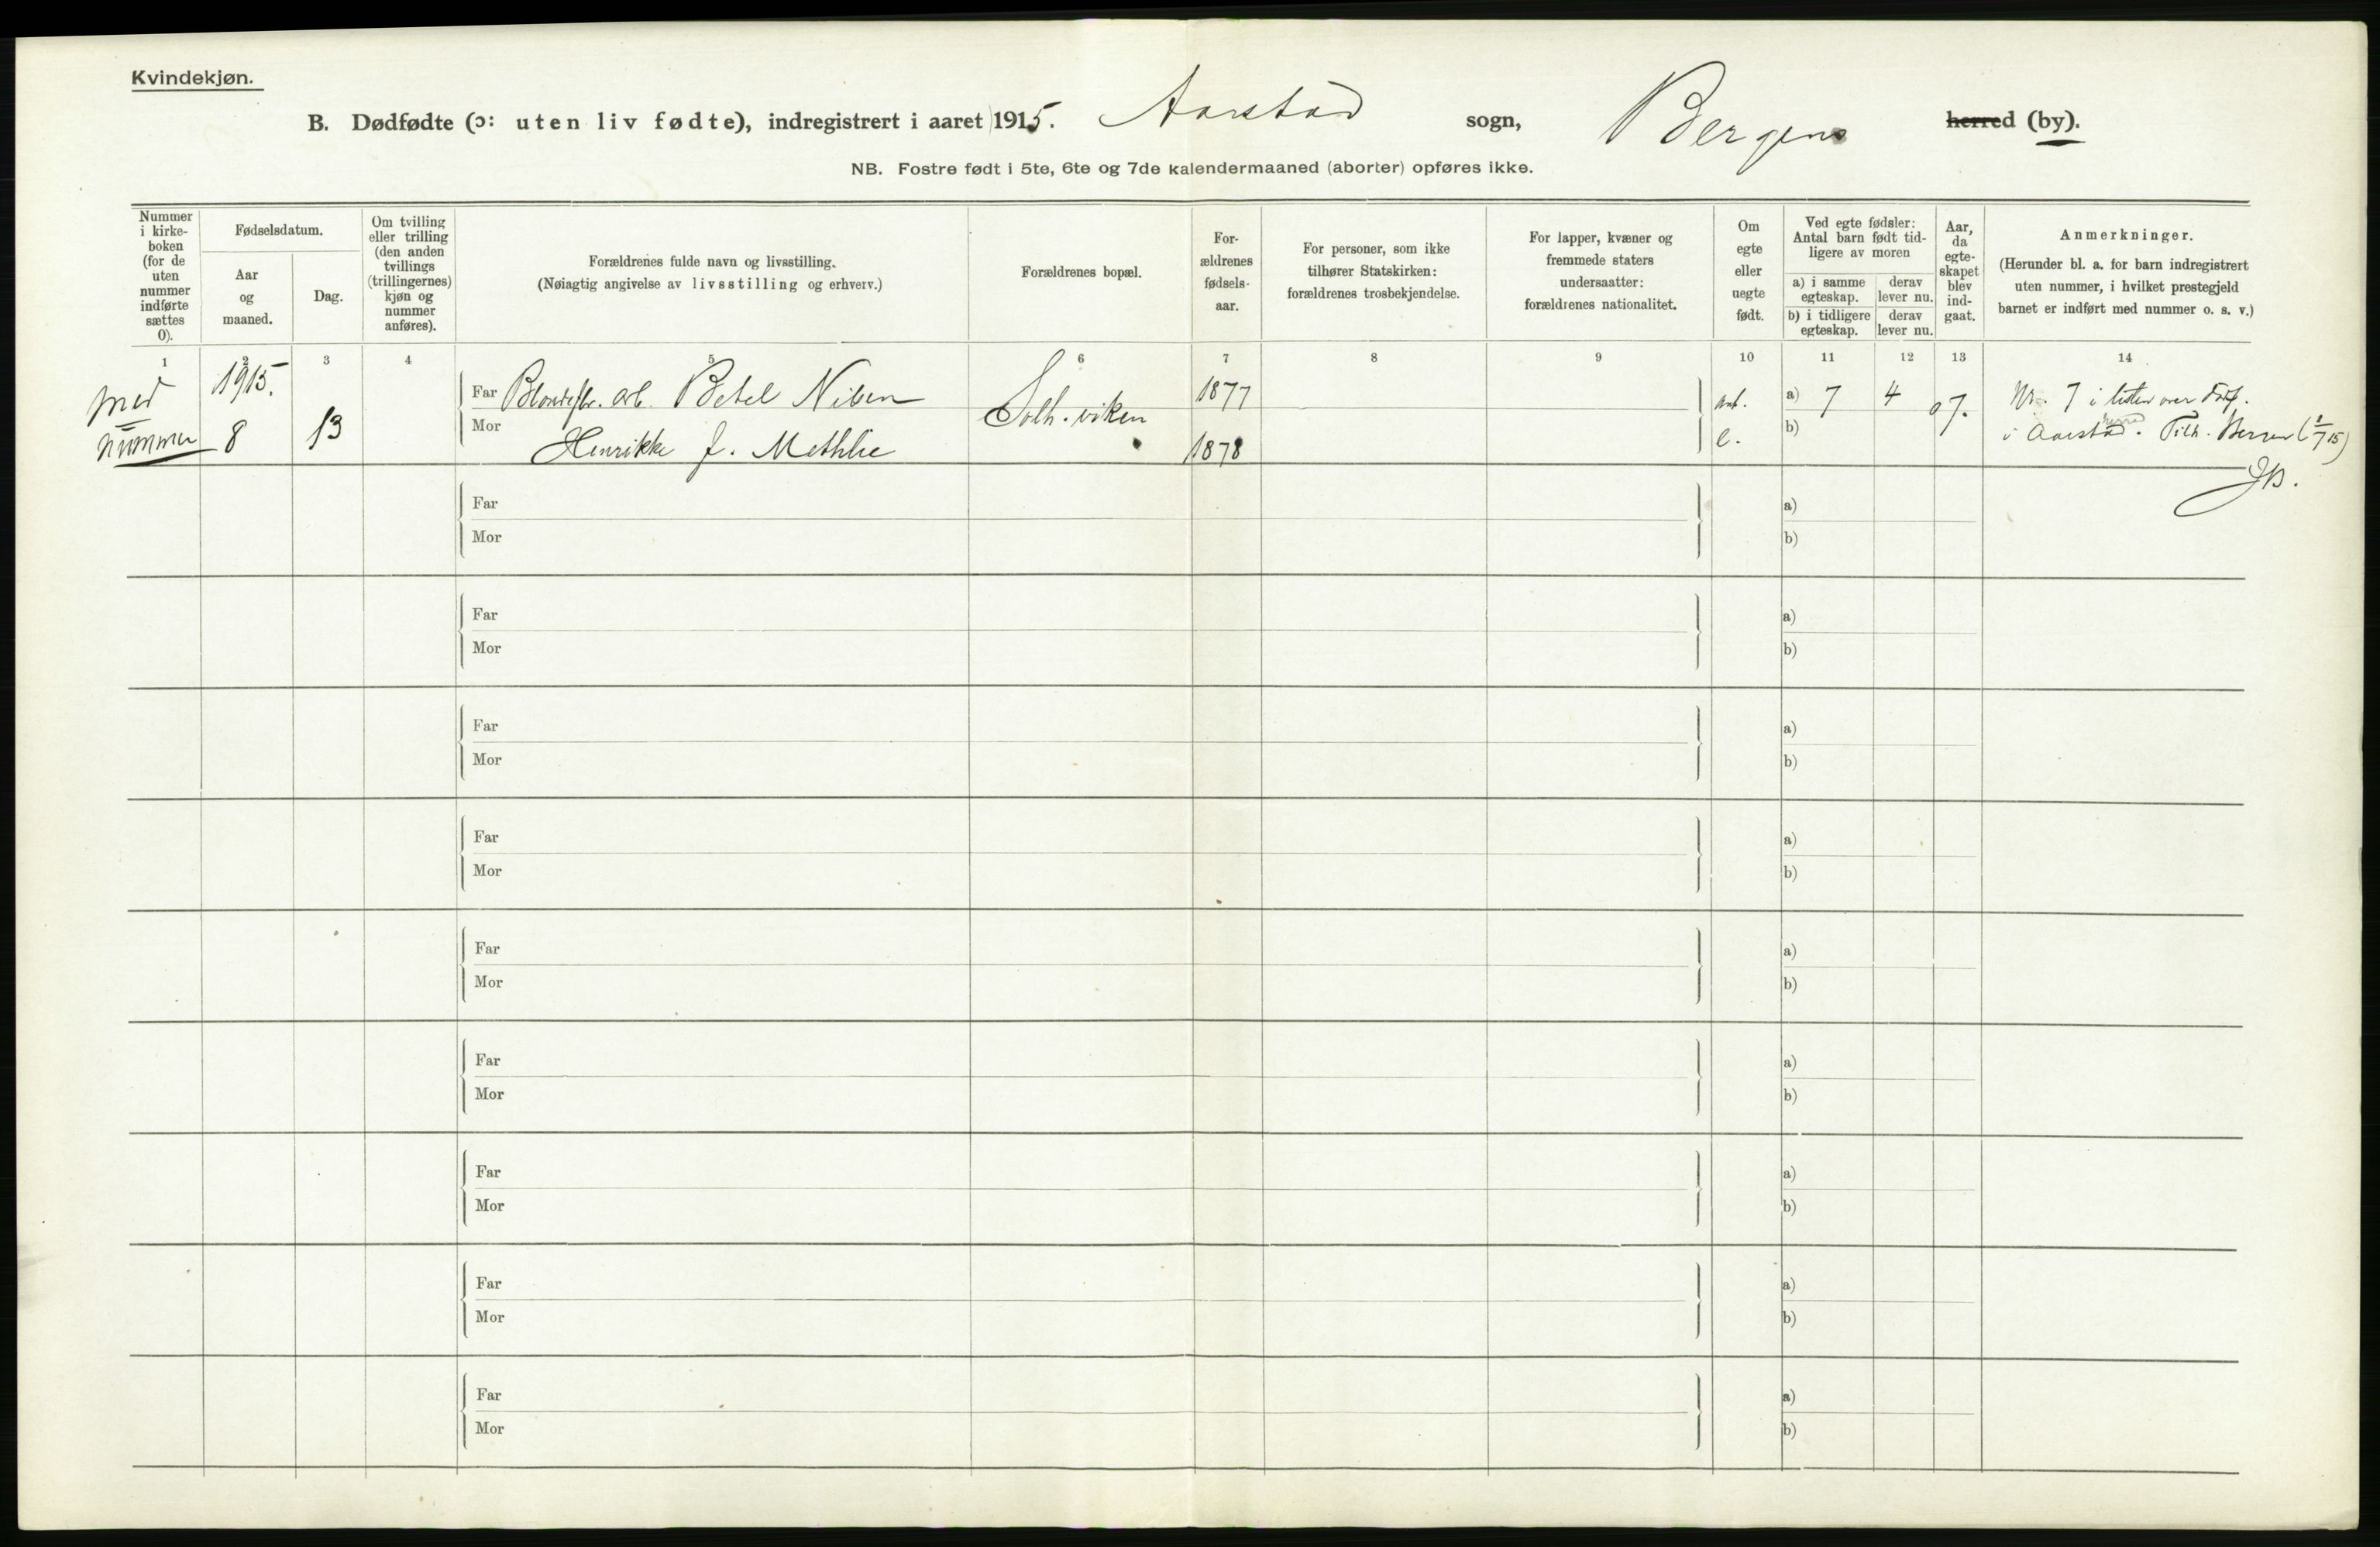 Kvindekjøn.
B. Dødfødte (ɔ: uten liv fødte), indregistrert i aaret 1915. Aarstad sogn, Bergens herred (by).
NB. Fostre født i 5te, 6te og 7de kalendermaaned (aborter) opføres ikke.
Nummer
i kirke-
boken
(for de
uten
nummer
indførte
sættes
0).
Fødselsdatum.
Aar
og
maaned.
Dag.
Om tvilling
eller trilling
(den anden
tvillings
(trillingernes)
kjøn og
nummer
anføres).
Forældrenes fulde navn og livsstilling.
(Nøiagtig angivelse av livsstilling og erhverv.)
Forældrenes bopæl.
For-
ældrenes
fødsels-
aar.
For personer, som ikke
tilhører Statskirken:
forældrenes trosbekjendelse.
For lapper, kvæner og
fremmede staters
undersaatter:
forældrenes nationalitet.
Om
egte
eller
uegte
født.
Ved egte fødsler:
Antal barn født tid-
ligere av moren
a) i samme
egteskap.
derav
lever nu.
b) i tidligere
egteskap.
derav
lever nu.
Aar,
da
egte-
skapet
blev
ind-
gaat.
Anmerkninger.
(Herunder bl. a. for barn indregistrert
uten nummer, i hvilket prestegjeld
barnet er indført med nummer o. s. v.)
1 2 3 4 5 6 7 8 9 10 11 12 13 14
med
nummer
1915.
8 13
Far arb. Betel Nilsen
Mor
Henrikke f. Methlie
Solh. viken
1877
1878
e.
a) 7 4 07.
b)
Nr. 7 i listen over
i Aarstad herred.
Far
Mor
a)
b)
Far
Mor
a)
b)
Far
Mor
a)
b)
Far
Mor
a)
b)
Far
Mor
a)
b)
Far
Mor
a)
b)
Far
Mor
a)
b)
Far
Mor
a)
b)
Far
Mor
a)
b)